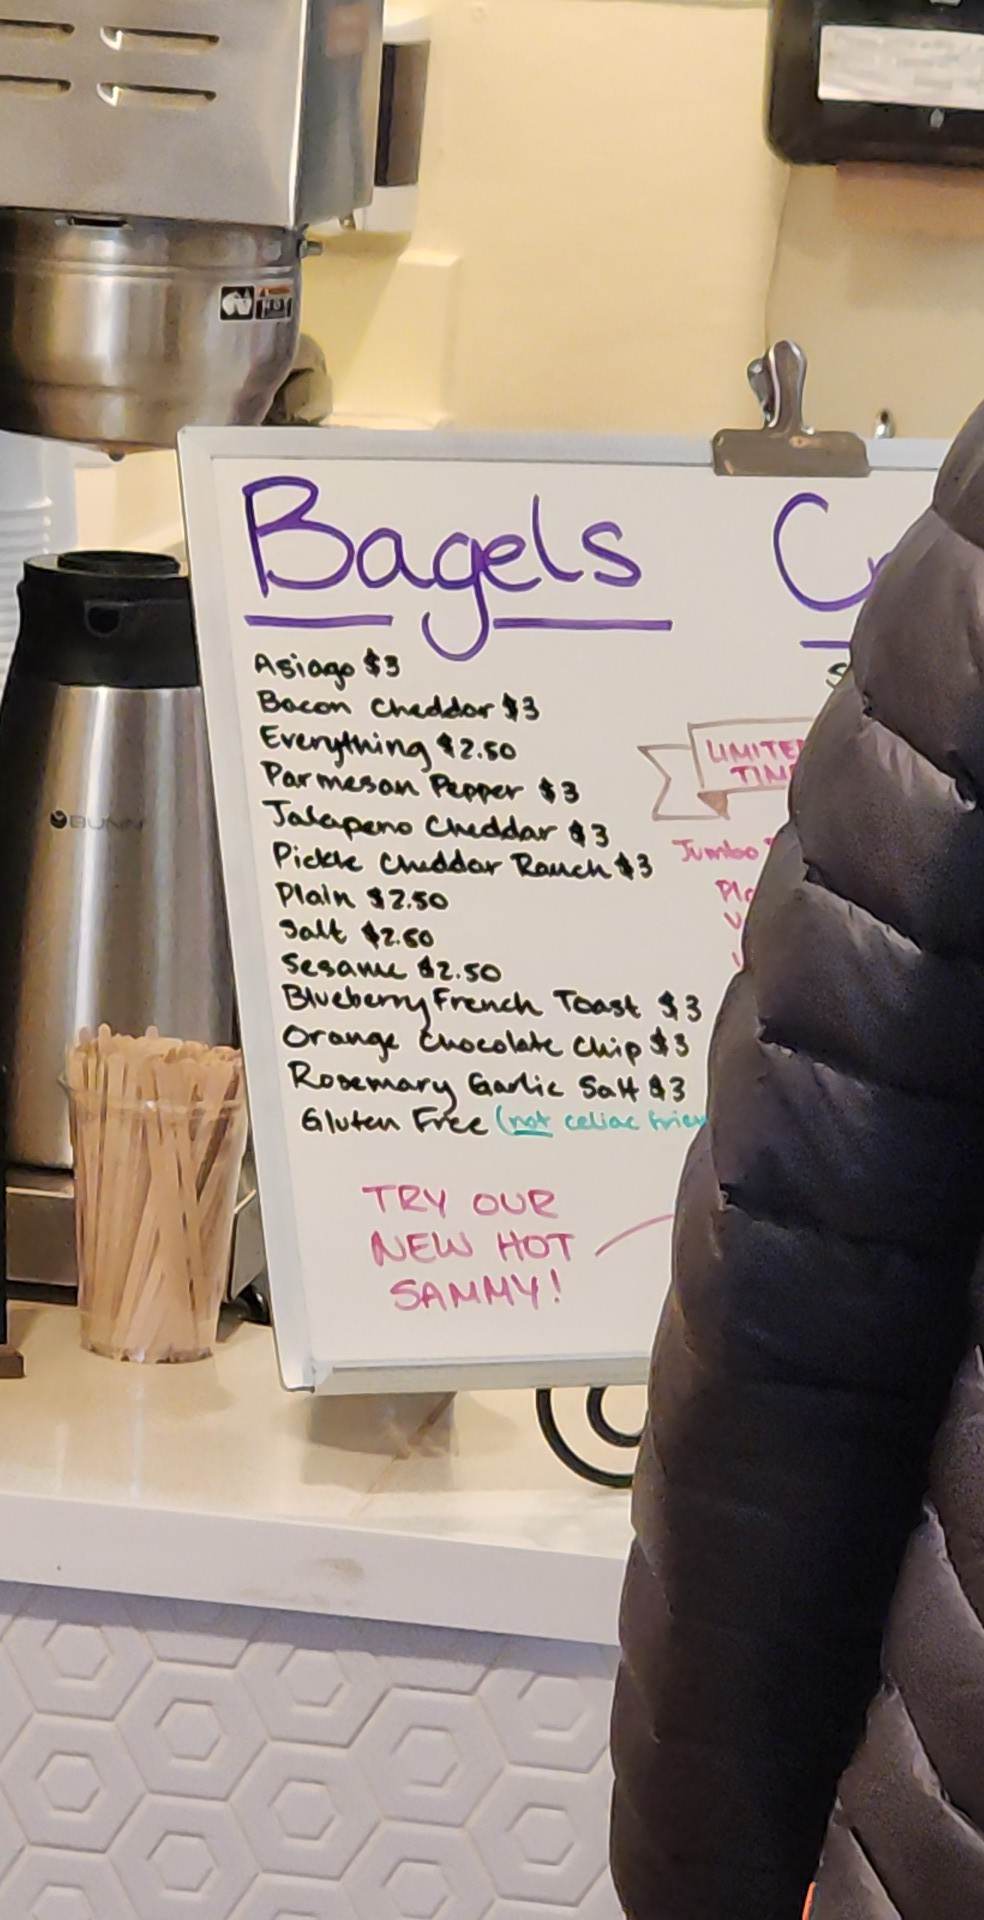 Bagels
Asiago $3
Bacon Cheddar $3
Everything $2.50
Parmesan Pepper $3
Jalapeno Cheddar $3
Pickle Cheddar Ranch $3
Plain $2.50
Salt $2.50
Sesame $2.50
Blueberry French Toast $3
Orange Chocolate Chip $3
Rosemary Garlic Salt $3
Gluten Free (not celiac frien
TRY OUR
NEW HOT
SAMMY!
LIMITE
TIM
Jumbo
BUNN